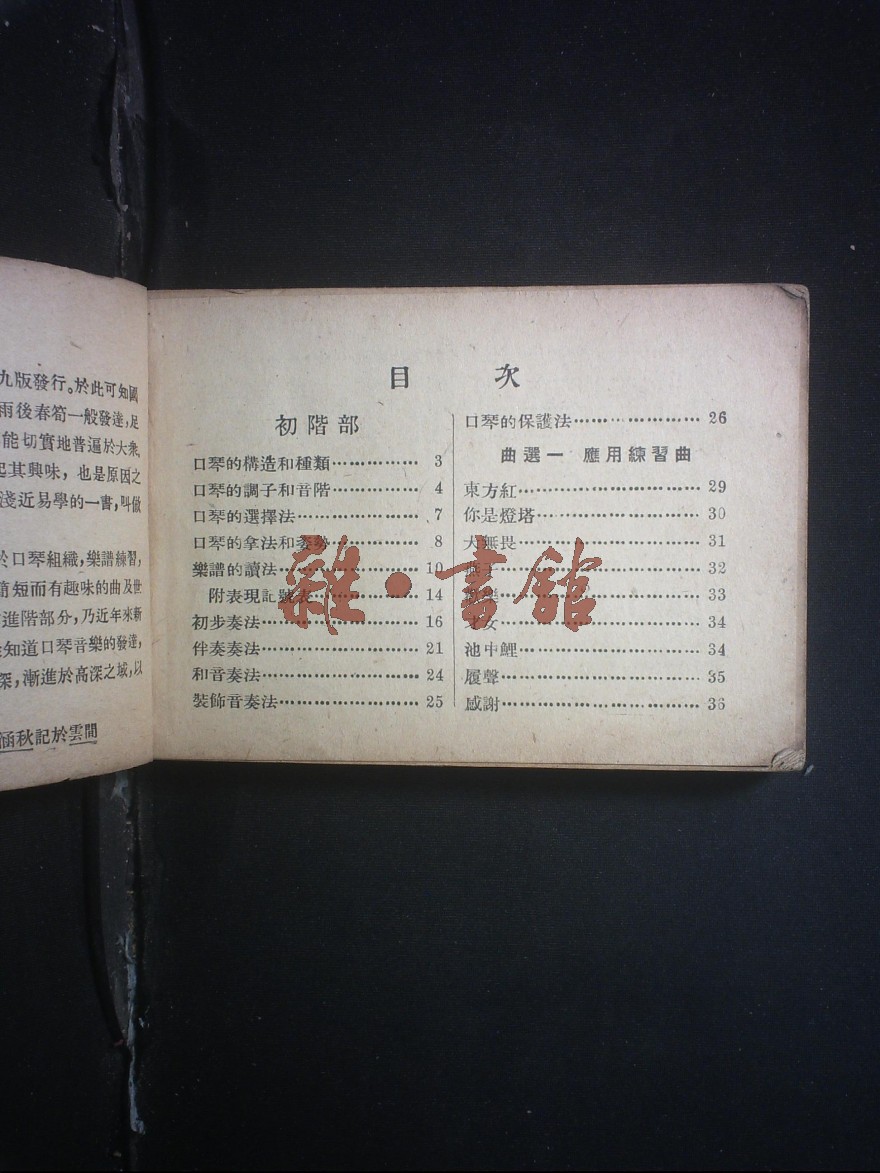 九版發行。於此可知國
雨後春筍一般發達,足
能切實地普遍於大衆,
起其興味,也是原因之
淺近易學的一書,叫做
於口琴組織,樂譜練習,
簡短而有趣味的曲及世
進階部分,乃近年來新
知道口琴音樂的發達,
深,漸進於高深之域,以
涵秋記於雲間
目 次
初階部
口琴的構造和種類 3
口琴的調子和音階 4
口琴的選擇法 7
口琴的拿法和姿勢 8
樂譜的讀法 10
附表現記號表 14
初步奏法 16
伴奏奏法 21
和音奏法 24
裝飾音奏法 25
口琴的保護法 26
曲選一 應用練習曲
東方紅 29
你是燈塔 30
大無畏 31
燕子 32
33
女 34
池中鯉 34
履聲 35
感謝 36
雜·書館